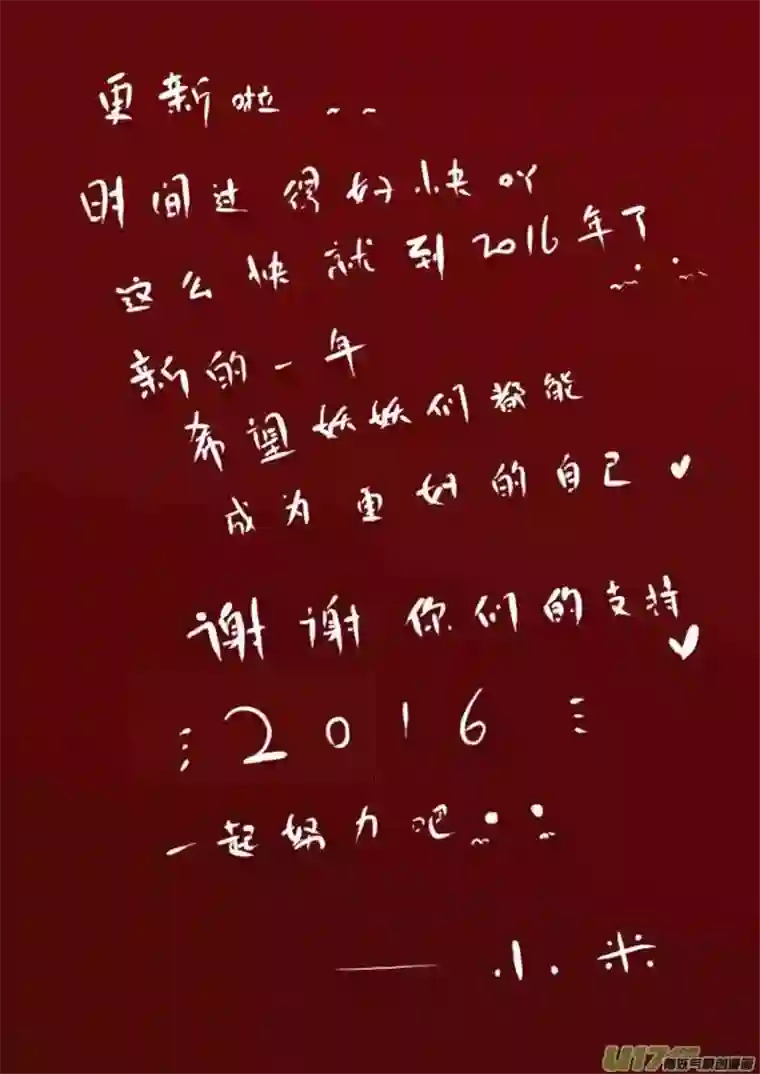 更新啦 ~ ~
时间过得好快吖
这么快就到2016年了
新的一年
希望妖妖们都能
成为更好的自己 ♥
谢谢你们的支持 ♥
2016
一起努力吧
—— 小米
U17.com
有妖气原创漫画